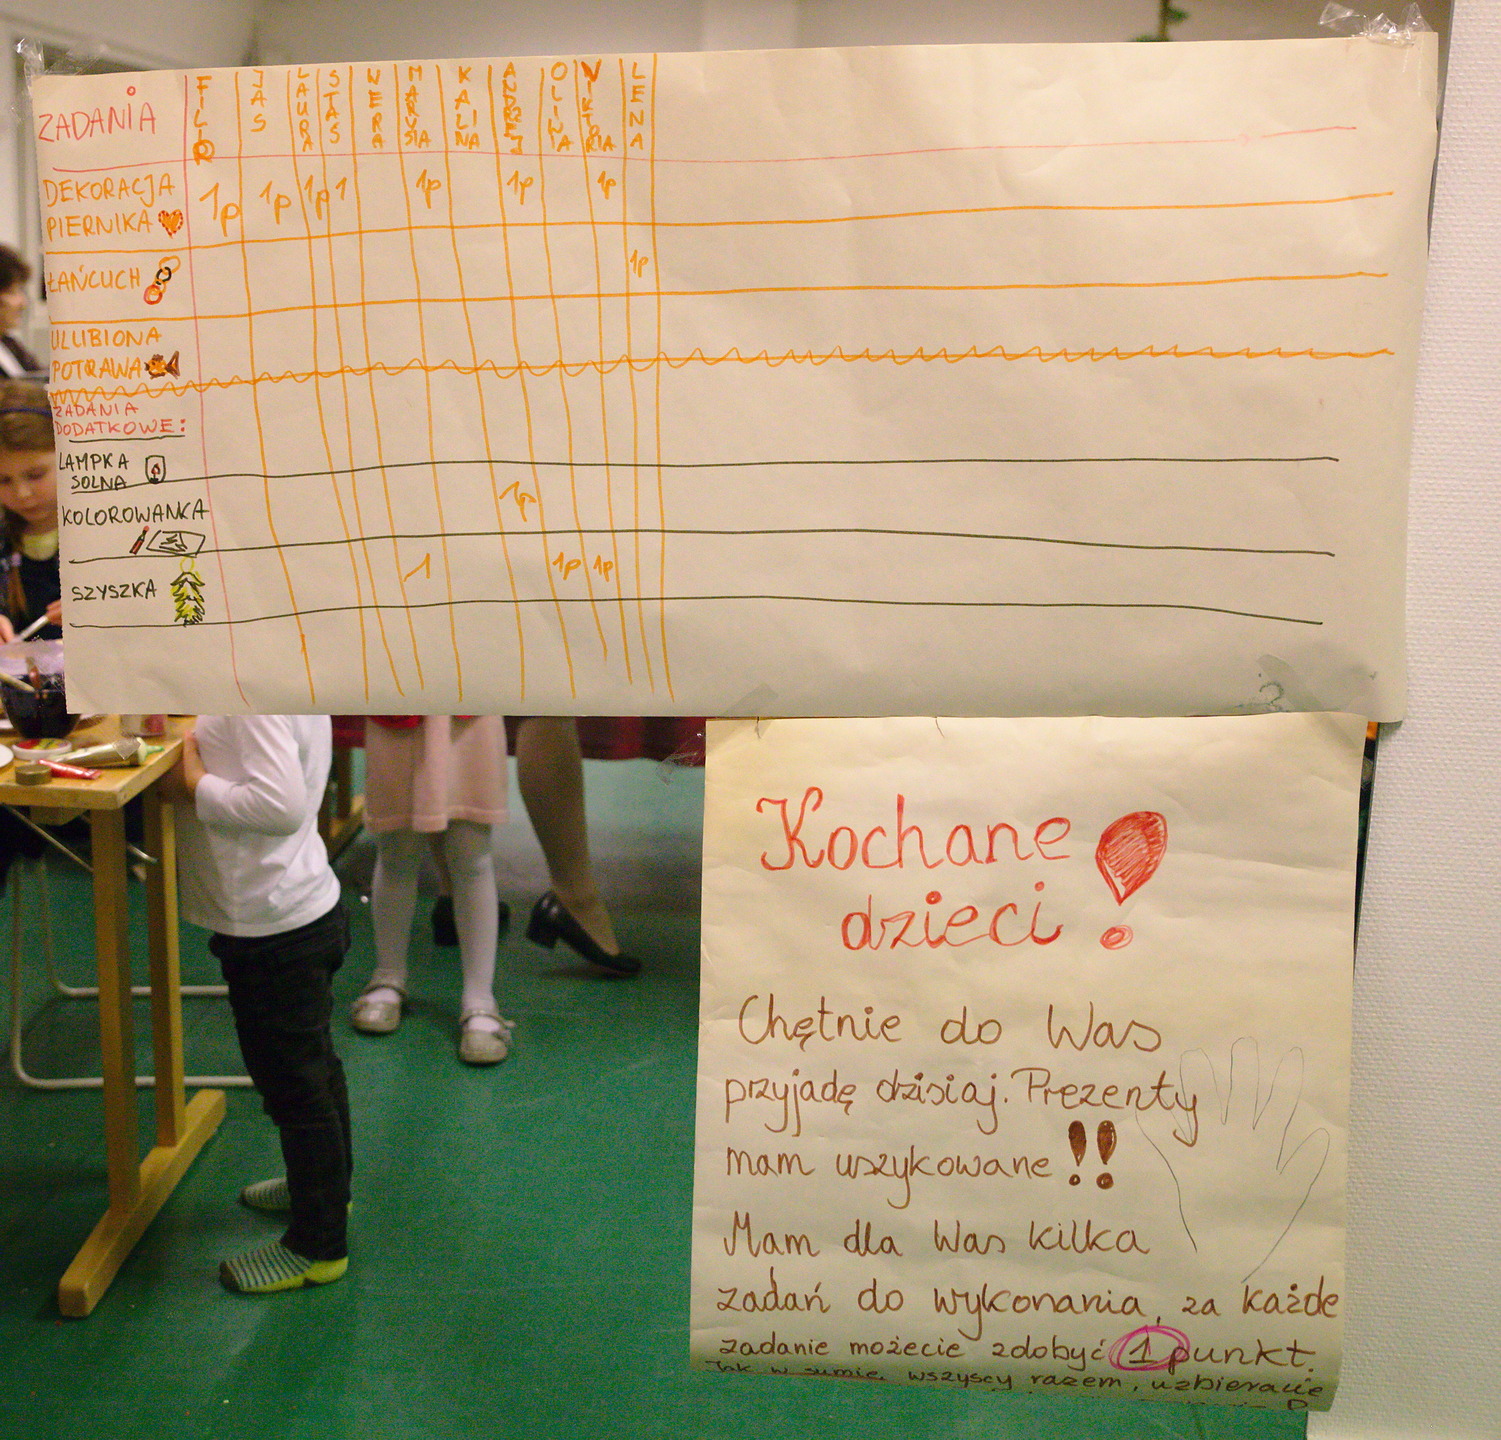 ZADANIA FILIP JAŚ LAURA STAŚ WERA MARYSIA KALINA ANDRZEJ OLIWIA WIKTORIA LENA
DEKORACJA
PIERNIKA 1p 1p 1p 1 1p 1p 1p
ŁAŃCUCH 1p
ULUBIONA
POTRAWA
ZADANIA
DODATKOWE:
LAMPKA
SOLNA
KOLOROWANKA 1p
SZYSZKA 1 1p 1p
Kochane
dzieci!
Chętnie do Was
przyjadę dzisiaj. Prezenty
mam uszykowane!!
Mam dla Was kilka
zadań do wykonania, za każde
zadanie możecie zdobyć 1 punkt.
Jak w sumie, wszyscy razem, uzbieracie